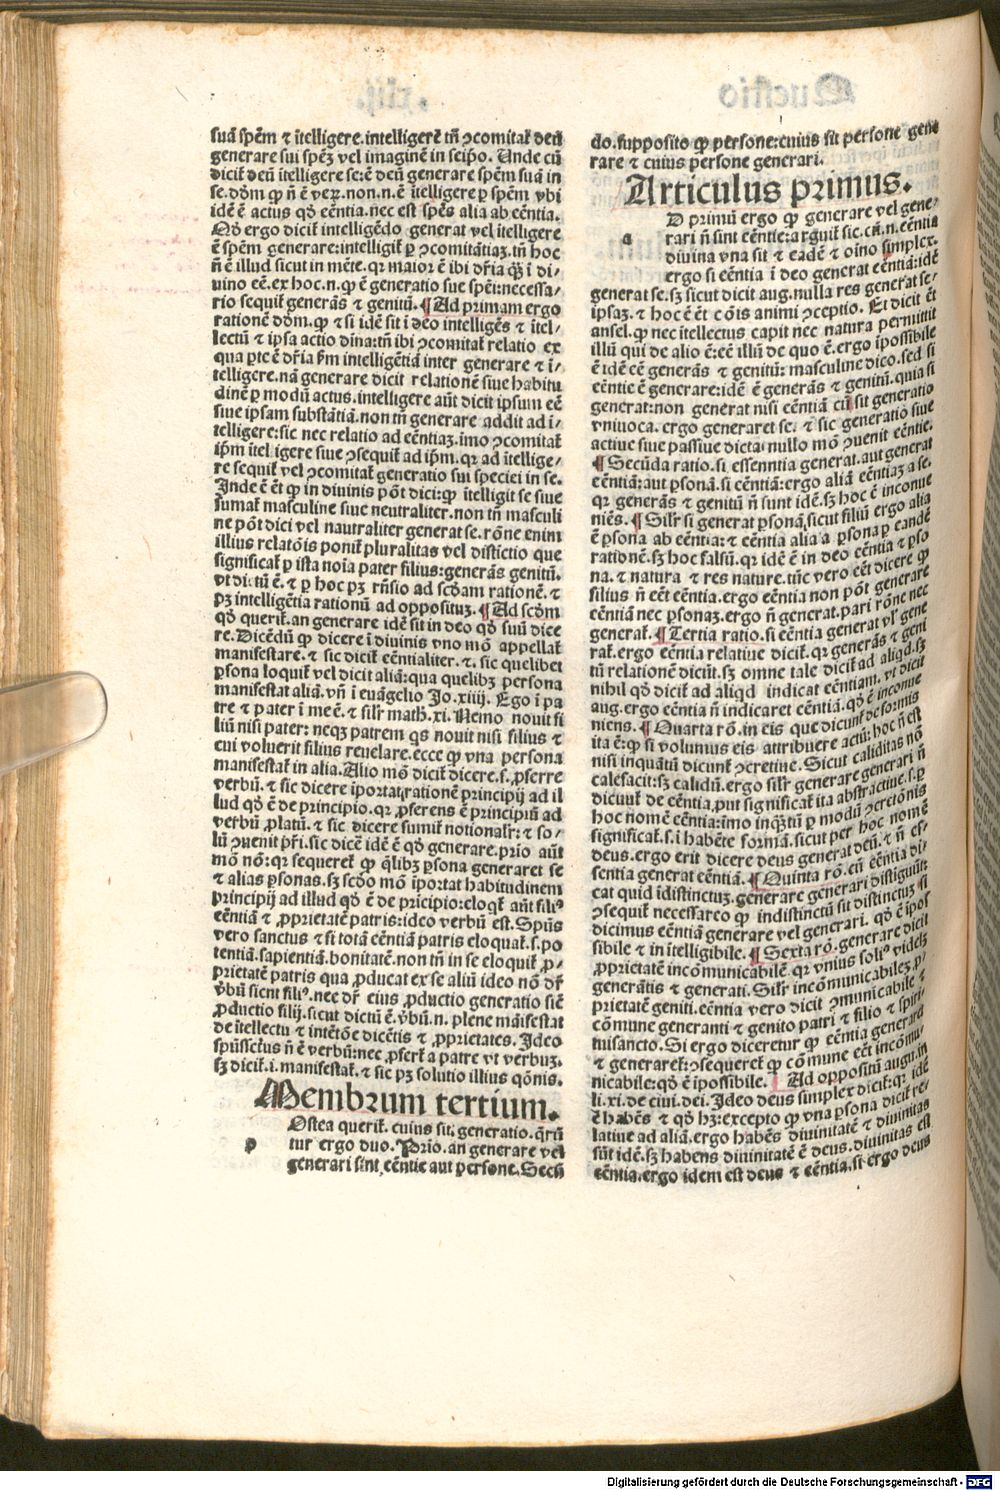 suā spēm ⁊ ītelligere.intelligerē tn̄ ꝯcomitat̄ deū
generare sui spēꝫ vel imaginē in seip̄o. Unde cū
dicit̄ deū ītelligere se:ē deū generare spēm suā in
se.dōm ꝙ n̄ ē veꝝ.non.n.ē ītelligere ꝑ spēm vbi
idē ē actus qd̄ eēntia.nec est spēs alia ab eēntia.
Qd̄ ergo dicit̄ intelligēdo generat vel ītelligere
ē spēm generare:intelligit̄ ꝑ ꝯcomitātiaꝫ.tn̄ hoc
n̄ ē illud sicut in mēte.qꝛ maior ē ibi dr̄ia qͣꝫ ī di/
uino eē.ex hoc.n.ꝙ ē generatio sue spēi:necessa/
rio sequit̄ generās ⁊ genitū. ¶ Ad primam ergo
rationē dōm.ꝙ ⁊ si idē sit ī deo intelligēs ⁊ ītel/
lectū ⁊ ipsa actio dīna:tn̄ ibi ꝯcomitat̄ relatio ex
qua ꝑte ē dr̄ia ẜm intelligētiā inter generare ⁊ ī/
telligere.nā generare dicit relationē siue habitu
dinē ꝑ modū actus.intelligere aūt dicit ipsum eē
siue ipsam substātiā.non tn̄ generare addit ad ī/
telligere:sic nec relatio ad eēntiaꝫ.imo ꝯcomitat̄
ip̄m ītelligere siue ꝯsequit̄ ad ip̄m.qꝛ ad ītellige/
re sequit̄ vel ꝯcomitat̄ generatio sui speciei in se.
Inde ē ēt ꝙ in diuinis pōt dici:ꝙ ītelligit se siue
sumat̄ masculine siue neutraliter.non tn̄ masculi
ne pōt dici vel nautraliter generat se.rōne enim
illius relatōis ponit̄ pluralitas vel distīctio que
significat̄ ꝑ ista noīa pater filius:generās genitū.
vt di:tū ē.⁊ ꝑ hoc pꝫ rn̄sio ad scd̄am rationē.⁊
pꝫ intelligētia rationū ad oppositūꝫ. ¶ Ad scd̄m
qd̄ querit̄.an generare idē sit in deo qd̄ suū dice
re.Dicēdū ꝙ dicere ī diuinis vno mō appellat̄
manifestare.⁊ sic dicit̄ eēntialiter.⁊.sic quelibet
ꝑsona loquit̄ vel dicit aliā:qua quelibꝫ persona
manifestat aliā.vn̄ ī euāgelio Jo.xiiij. Ego ī pa
tre ⁊ pater ī me ē.⁊ silr̄ math.xi. Nemo nouit fi
liū nisi pater: neqꝫ patrem qͥs nouit nisi filius ⁊
cui voluerit filius reuelare.ecce ꝙ vna persona
manifestat̄ in alia.Alio mō dicit̄ dicere.s.ꝓferre
verbū.⁊ sic dicere īportat rationē principij ad il
lud qd̄ ē de principio.qꝛ ꝓferens ē principiū ad
verbū ꝓlatū.⁊ sic dicere sumit̄ notionalr̄:⁊ so/
lū ꝯuenit pr̄i.sic dicē idē ē qd̄ generare.prīo aūt
mō nō:qꝛ sequeret̄ ꝙ qͣlibꝫ ꝑsona generaret se
⁊ alias ꝑsonas.sꝫ scd̄o mō īportat habitudinem
principij ad illud qd̄ ē de pricipio:eloqt̄ aūt filiꝰ
eēntiā ⁊ ꝓprietatē patris:ideo verbū est.Spūs
vero sanctus ⁊ si totā eēntiā patris eloquat̄.s.po
tentiā.sapientiā.bonitatē.non tn̄ in se eloquit̄ ꝓ/
prietatē patris qua ꝓducat ex se aliū ideo nō dr̄
v̄bū sicut filiꝰ.nec dr̄ eius ꝓductio generatio siē
ꝓductio filij.sicut dictū ē.v̄bū.n.plene māifestat
de ītellectu ⁊ intētōe dicētis ⁊ ꝓprietates. Ideo
spūssctūs n̄ ē verbū:nec ꝓfert̄ a patre vt verbuꝫ.
sꝫ dicit̄.i.manifestat̄.⁊ sic pꝫ solutio illius qōnis.
Membrum tertium.
p
Ostea querit̄.cuius sit generatio.qr̄ūt
tur ergo duo.Prīo.an generare vel
generari sint eēntie aut persone.Secū
do.supposito ꝙ persone:cuius sit persone gene
rare ⁊ cuius persone generari.
Articulus primus.
a
D primū ergo ꝙ generare vel gene/
rari n̄ sint eēntie:arguit̄ sic.cū.n.eēntia
diuina vna sit ⁊ eadē ⁊ oīno simplex.
ergo si eēntia ī deo generat eēntiā:idē
generat se.sꝫ sicut dicit aug.nulla res generat se/
ipsaꝫ.⁊ hoc ē ēt cōis animi ꝯceptio. Et dicit ēt
ansel.ꝙ nec ītellectus capit nec natura permittit
illū qui de alio ē:eē illū de quo ē.ergo īpossibile
ē idē eē generās ⁊ genitū: masculine dico.sed si
eēntie ē generare:idē ē generās ⁊ genitū.quia si
generat:non generat nisi eēntiā cū sit generatio
vniuoca.ergo generaret se. ⁊ sic generatio siue
actiue siue passiue dicta:nullo mō ꝯuenit eēntie.
¶ Secūda ratio.si essenntia generat.aut generat
eēntiā:aut ꝑsonā.si eēntiā:ergo aliā eēntiaꝫ a se.
qꝛ generās ⁊ genitū n̄ sunt idē.sꝫ hoc ē inconue
niēs. ¶ Silr̄ si generat ꝑsonā,sicut filiū ergo alia
ē ꝑsona ab eēntia:⁊ eēntia alia a ꝑsona ꝑ eandē
rationē.sꝫ hoc falsū.qꝛ idē ē in deo eēntia ⁊ ꝑso
na.⁊ natura ⁊ res nature.tūc vero eēt dicere ꝙ
filius n̄ eēt eēntia.ergo eēntia non pōt generare
eēntiā nec ꝑsonaꝫ.ergo n̄ generat.pari rōne nec
generat̄. ¶ Tertia ratio.si eēntia generat vl̄ gene
rat̄.ergo eēntia relatiue dicit̄.qꝛ generās ⁊ geni
tū relationē dicūt.sꝫ omne tale dicit̄ ad aliqd.sꝫ
nihil qd̄ dicit̄ ad aliqd indicat eēntiam.vt dicit
aug.ergo eēntia n̄ indicaret eēntiā.qd̄ ē inconue
niens. ¶ Quarta rō.in eis que dicunt̄ de formis
ita ē:ꝙ si volumus eis attribuere actū:hoc n̄ est
nisi inquātū dicunt̄ ꝯcretiue. Sicut caliditas nō
calefacit:sꝫ calidū.ergo silr̄ generare generari n̄
dicunt̄ de eēntia,put significat̄ ita abstractiue.s.ꝑ
hoc nomē eēntia:imo inqͣtū ꝑ modū ꝯcretōnis
significat̄.s.ī habēte formā.sicut per hoc nomē
deus.ergo erit dicere deus generat deū.⁊ n̄ es/
sentia generat eēntiā. ¶ Quinta rō.cū eēntia di/
cat quid īdistinctuꝫ.generare generari distiguūt:
ꝯsequit̄ necessareo ꝙ indistinctū sit distinctuꝫ si
dicimus eēntiā generare vel generari. qd̄ ē īpos
sibile ⁊ in ītelligibile. ¶ Sexta rō.generare dicit
ꝓprietatē incōmunicabilē.qꝛ vnius soliꝰ videlꝫ
generātis ⁊ generati. Silr̄ incōmunicabileꝫ ꝓ/
prietatē geniti.eēntia vero dicit ꝯmunicabile ⁊
cōmune generanti ⁊ genito patri ⁊ filio ⁊ spiri/
tuisancto. Si ergo diceretur ꝙ eēntia generaret
⁊ generaret̄:ꝯsequeret̄ ꝙ cōmune eēt incōmu/
nicabile:qd̄ ē īpossibile. ¶ Ad oppositū augu.in
li.xi.de ciui.dei. Ideo deus simplex dicit̄:qꝛ idē
ē habēs ⁊ qd̄ hꝫ:excepto ꝙ vna ꝑsona dicit̄ re/
latiue ad aliā.ergo habēs diuinitatē ⁊ diuinitas
sūt idē.sꝫ habens diuinitatē ē deus.diuinitas est
eēntia.ergo idem est deus ⁊ eēntia.si ergo deus
Digitalisierung gefördert durch die Deutsche Forschungsgemeinschaft - DFG